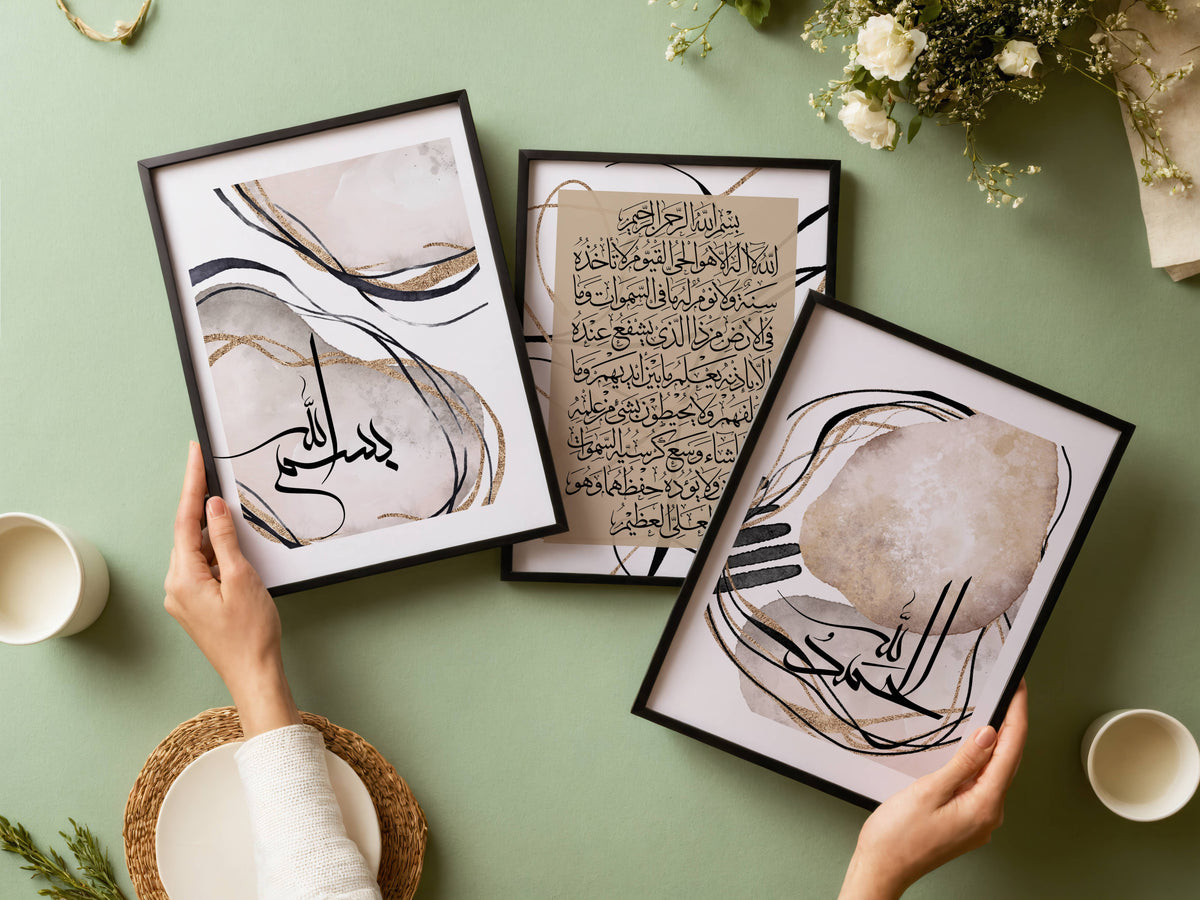 بسم الله
بسم الله الرحمن الرحيم
الله لا اله الا هو الحي القيوم لا تأخذه
سنة ولا نوم له ما في السموات وما
في الارض من ذا الذي يشفع عنده
الا باذنه يعلم ما بين ايديهم وما
لفهم ولا يحيطون بشئ من علمه
شاء وسع كرسيه السموات
ولا يؤده حفظهما وهو
لعلي العظيم
الحمد لله